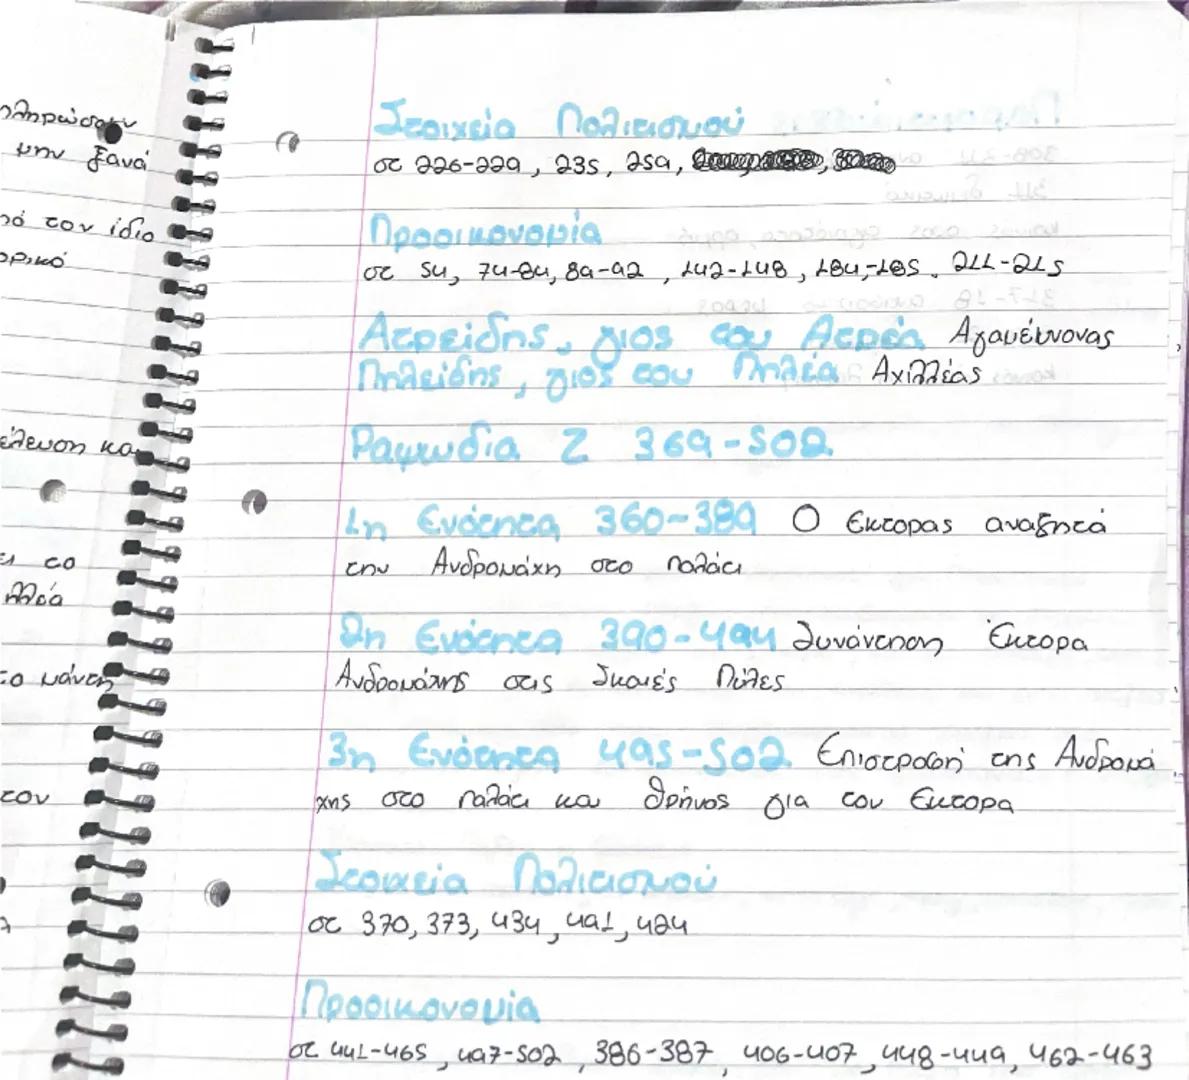 πληρώσουν
μην ξανά
από τον ίδιο
έλευση και
το
το μάντη
τον
Στοιχεία Πολιτισμού
σε 226-229, 235, 259,
Προοικονομία
σε 54, 74-84, 89-92, 142-148, 184-185, 211-215
Ατρείδης, γιος του Ατρέα Αγαμέμνονας
Πηλείδης, γιος του Πηλέα Αχιλλέας
Ραψωδία Ζ 369-502
1η Ενότητα 360-389 Ο Έκτορας αναζητά
την Ανδρομάχη στο παλάτι
2η Ενότητα 390-494 Συνάντηση Έκτορα
Ανδρομάχης στις Σκαιές Πύλες
3η Ενότητα 495-502 Επιστροφή της Ανδρομά
χης στο παλάτι και θρήνος για τον Έκτορα
Στοιχεία Πολιτισμού
σε 370, 373, 434, 491, 424
Προοικονομία
σε 441-465, 497-502, 386-387, 406-407, 448-449, 462-463